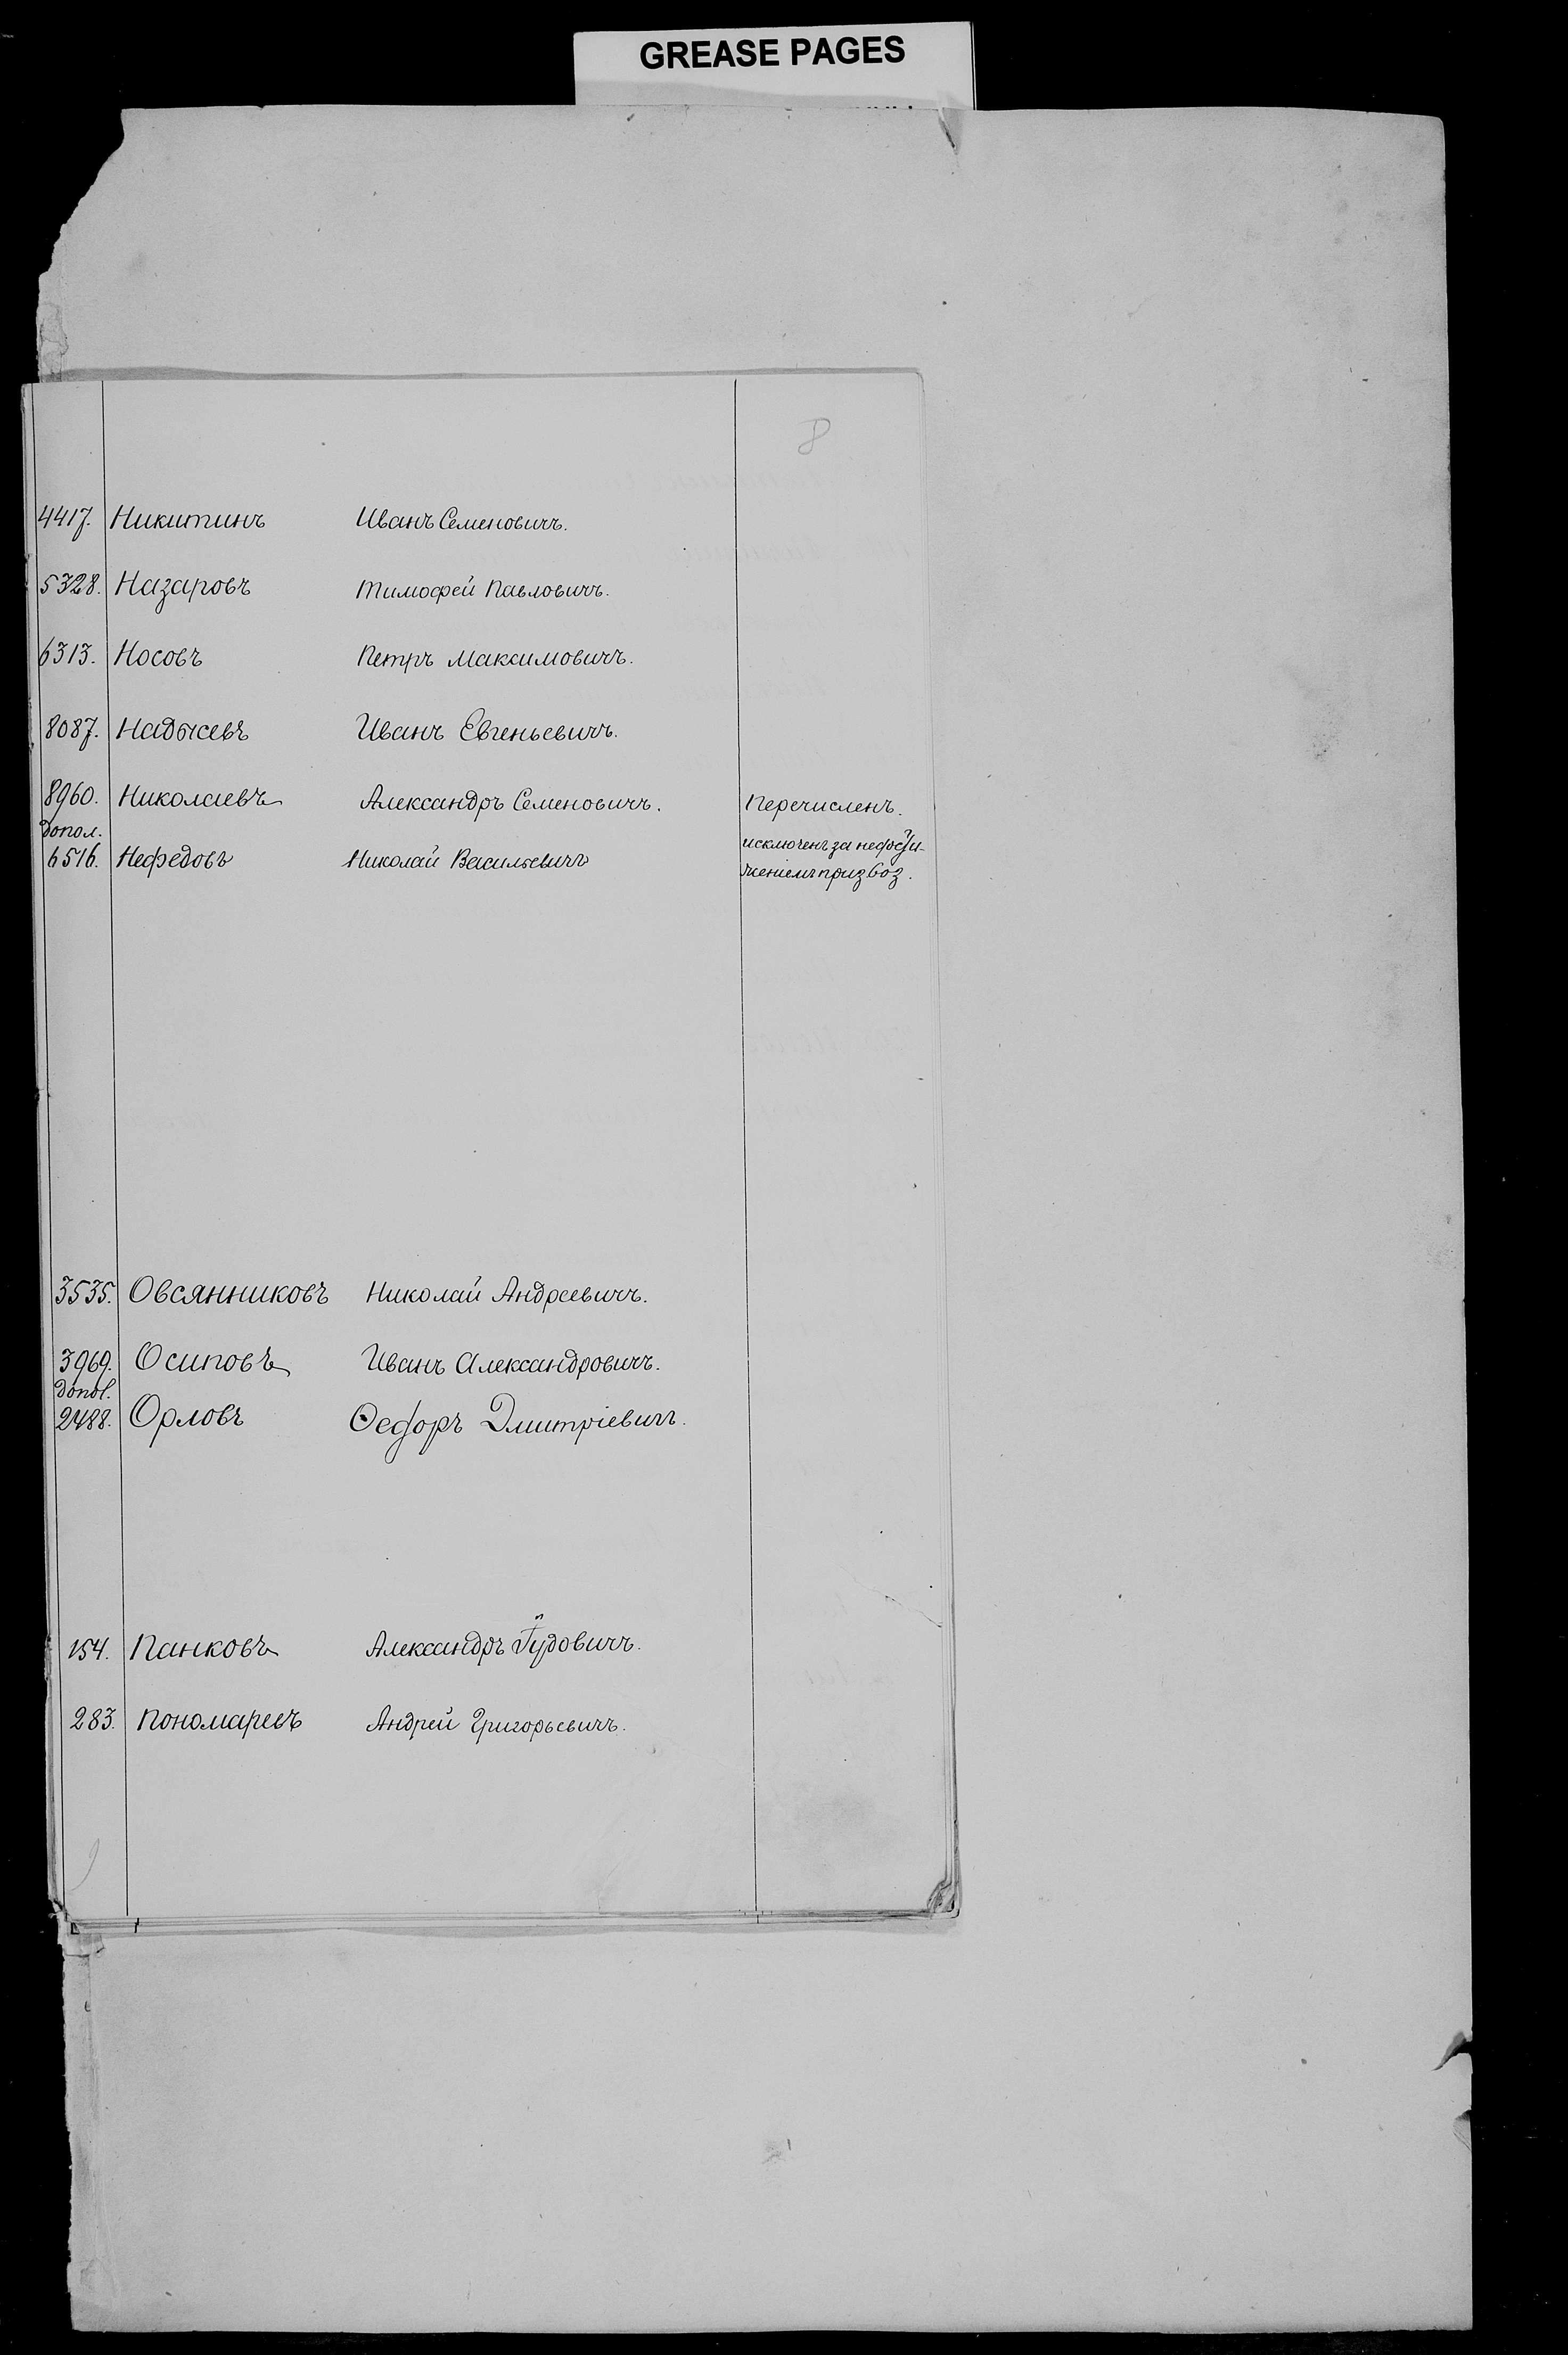 GREASE PAGES
8
4417. Никитинъ Иванъ Семеновичъ.
5328. Назаровъ Тимофей Павловичъ.
6313. Носовъ Петръ Максимовичъ.
8087. Надысевъ Иванъ Евгеньевичъ.
8960. Николаевъ Александръ Семеновичъ. Перечисленъ.
допол.
6516. Нефедовъ Николай Васильевичъ исключенъ за недости-
женіемъ приз воз.
3535. Овсянниковъ Николай Андреевичъ.
3969. Осиповъ Иванъ Александровичъ.
допол.
2488. Орловъ Ѳедоръ Дмитріевичъ.
154. Панковъ Александръ Гудовичъ.
283. Пономаревъ Андрей Григорьевичъ.